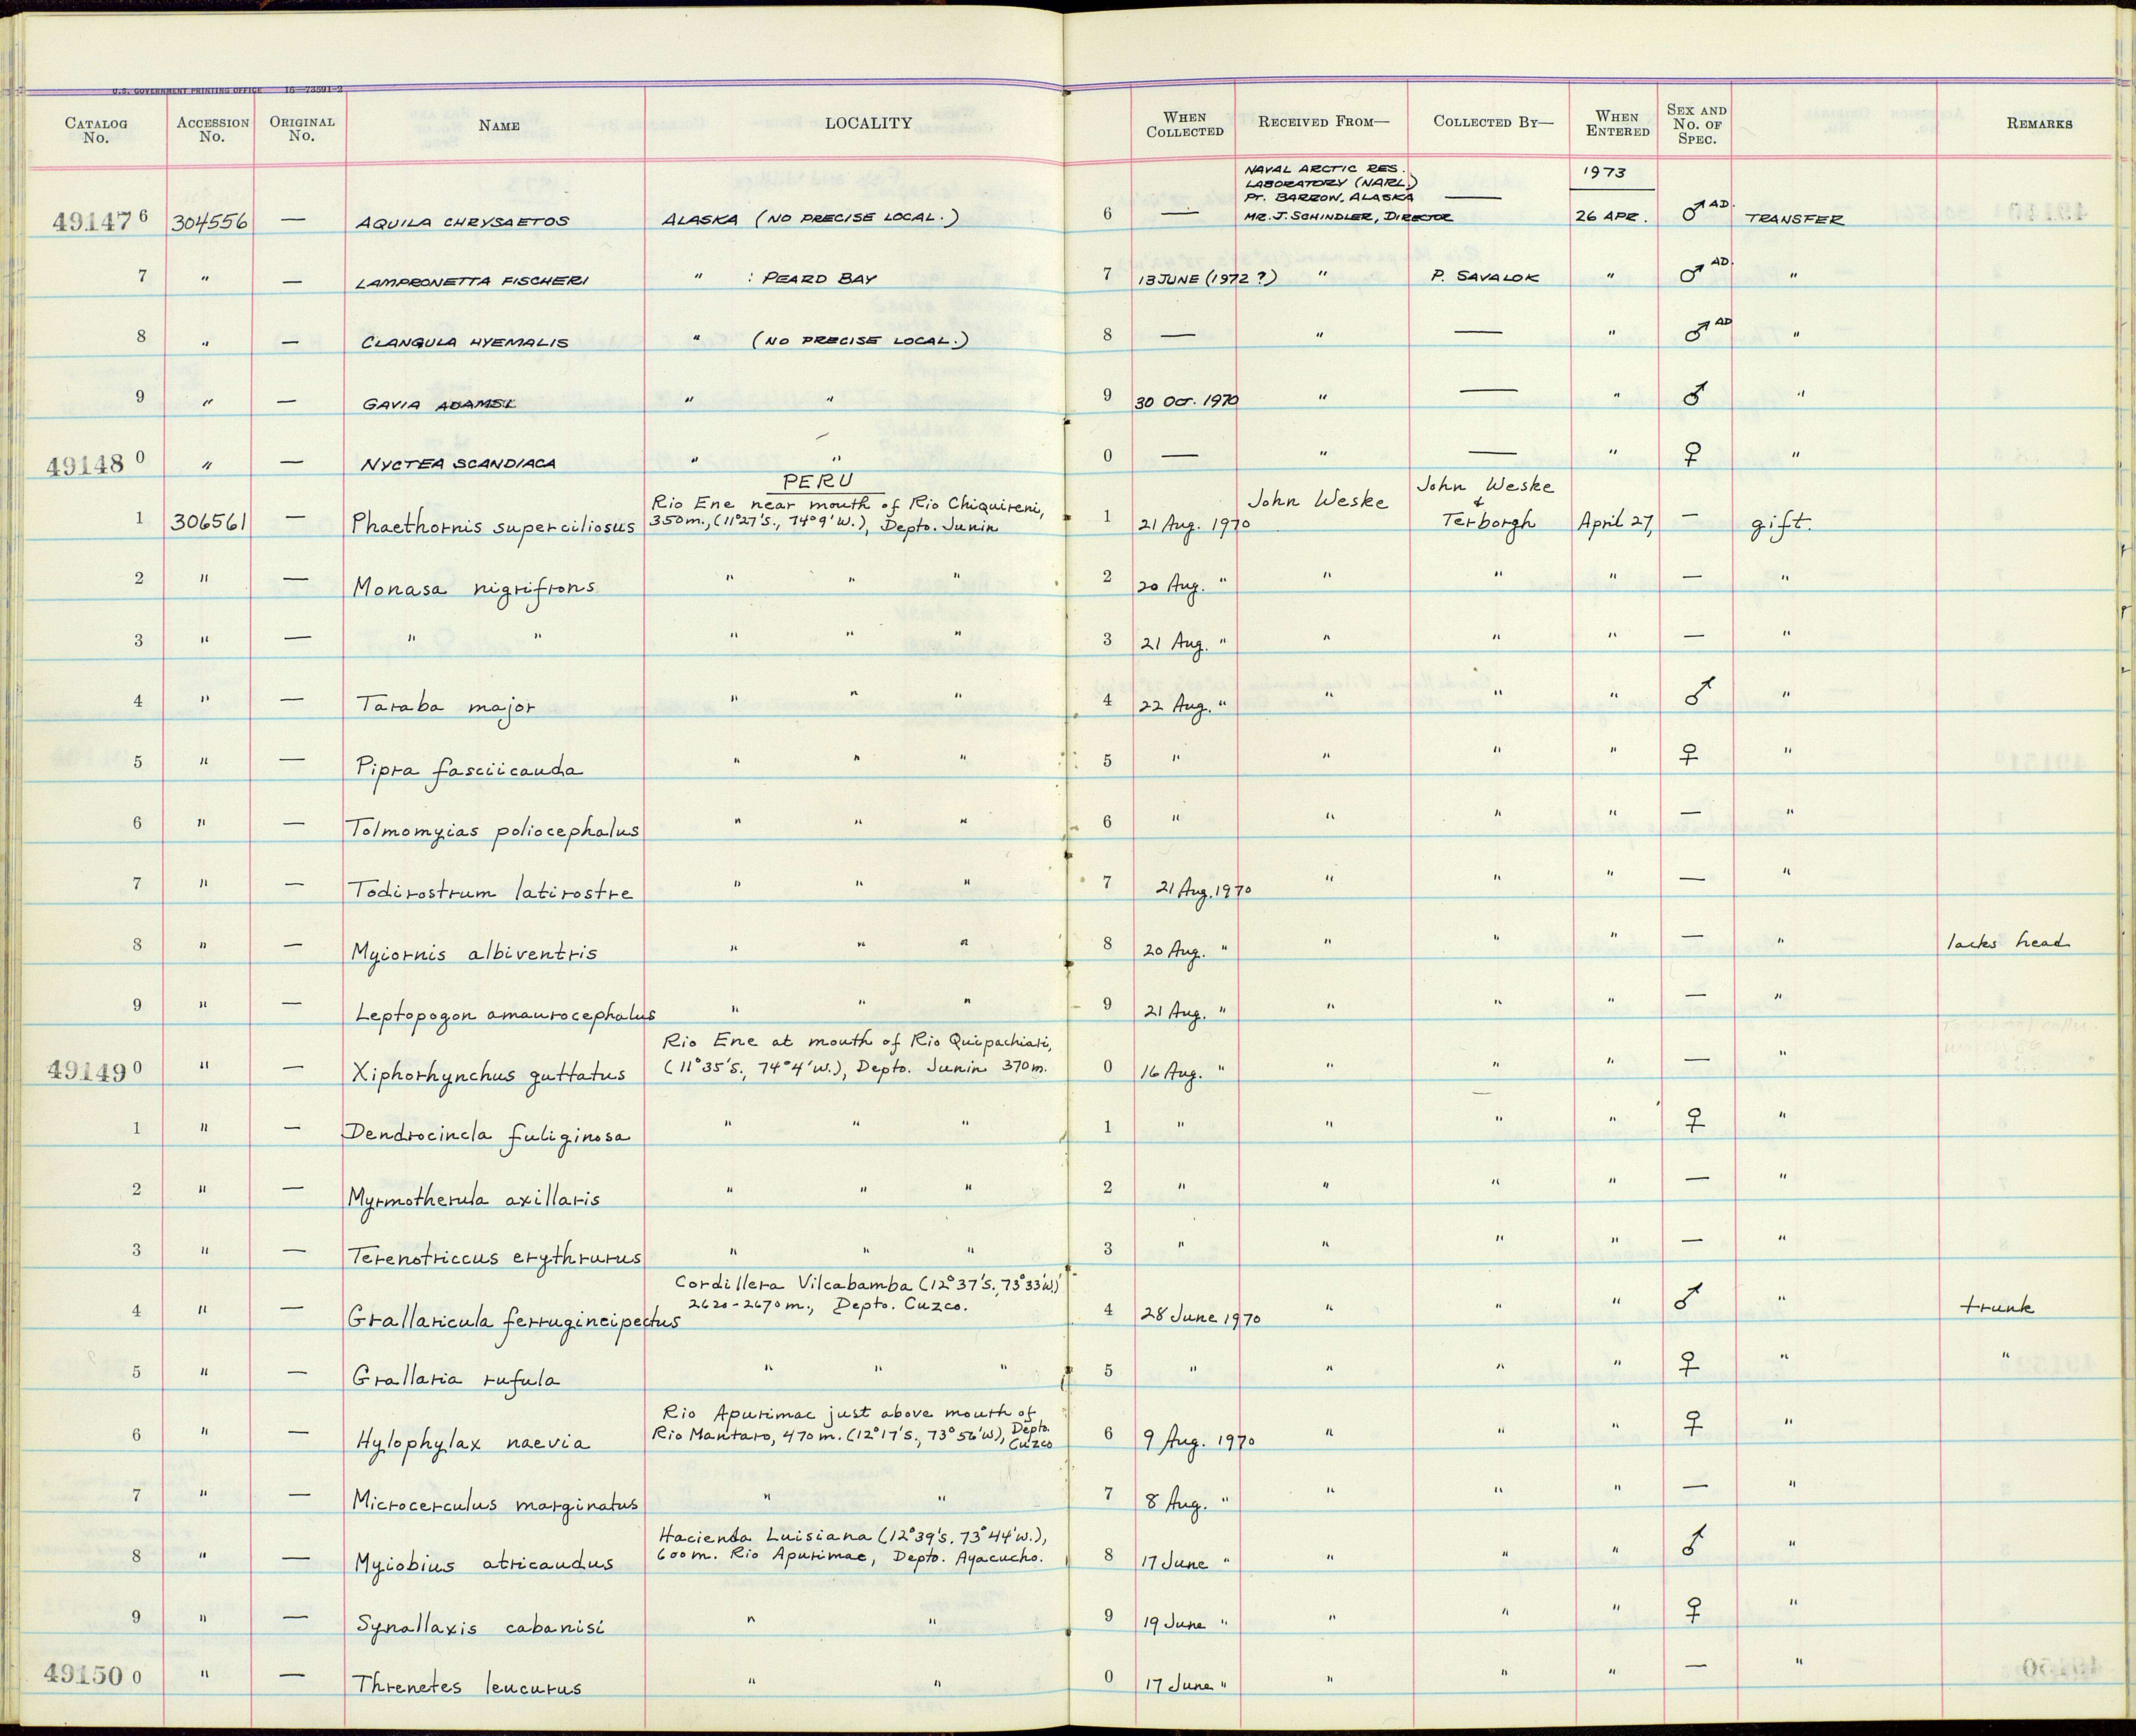 U.S. GOVERNMENT PRINTING OFFICE 16—73591-2
CATALOG No. ACCESSION No. ORIGINAL No. NAME LOCALITY WHEN COLLECTED RECEIVED FROM— COLLECTED BY— WHEN ENTERED SEX AND No. OF SPEC. REMARKS
NAVAL ARCTIC RES. 1973
LABORATORY (NARL)
PT. BARROW, ALASKA —
49147 6 304556 — AQUILA CHRYSAETOS ALASKA (NO PRECISE LOCAL.) 6 — MR. J. SCHINDLER, DIRECTOR 26 APR. ♂ AD. TRANSFER
7 " — LAMPRONETTA FISCHERI " : PEARD BAY 7 13 JUNE (1972?) " P. SAVALOK " ♂ AD. "
8 " — CLANGULA HYEMALIS " (NO PRECISE LOCAL.) 8 — " — " ♂ AD "
9 " — GAVIA ADAMSI " " 9 30 OCT. 1970 " — " ♂ "
49148 0 " — NYCTEA SCANDIACA " " 0 — " — " ♀ "
PERU
Rio Ene near mouth of Rio Chiquireni, John Weske John Weske
&
1 306561 — Phaethornis superciliosus 350m., (11°27's., 74°9'w.), Depto. Junin 1 21 Aug. 1970 Terborgh April 27, — gift.
2 " — Monasa nigrifrons " " " 2 20 Aug. " " " " — "
3 " — " " " " " 3 21 Aug. " " " " — "
4 " — Taraba major " " " 4 22 Aug. " " " " ♂ "
5 " — Pipra fasciicauda " " " 5 " " " " ♀ "
6 " — Tolmomyias poliocephalus " " " 6 " " " " — "
7 " — Todirostrum latirostre " " " 7 21 Aug. 1970 " " " — "
8 " — Myiornis albiventris " " " 8 20 Aug. " " " " — " lacks head
9 " — Leptopogon amaurocephalus " " " 9 21 Aug. " " " " — "
Rio Ene at mouth of Rio Quipachiari,
49149 0 " — Xiphorhynchus guttatus (11°35's., 74°4'w.), Depto. Junin 370m. 0 16 Aug. " " " " — "
1 " — Dendrocincla fuliginosa " " " 1 " " " " ♀ "
2 " — Myrmotherula axillaris " " " 2 " " " " — "
3 " — Terenotriccus erythrurus " " " 3 " " " " — "
Cordillera Vilcabamba (12°37's., 73°33'w.)
2620-2670m., Depto. Cuzco.
4 " — Grallaricula ferrugineipectus 4 28 June 1970 " " " ♂ " trunk
5 " — Grallaria rufula " " " 5 " " " " ♀ " "
Rio Apurimac just above mouth of
6 " — Hylophylax naevia Rio Mantaro, 470m. (12°17's., 73°56'w), Depto. Cuzco 6 9 Aug. 1970 " " " ♀ "
7 " — Microcerculus marginatus " " 7 8 Aug. " " " " — "
Hacienda Luisiana (12°39's. 73°44'w.),
8 " — Myiobius atricaudus 600m. Rio Apurimac, Depto. Ayacucho. 8 17 June " " " " ♂ "
9 " — Synallaxis cabanisi " " 9 19 June " " " " ♀ "
49150 0 " — Threnetes leucurus " " 0 17 June " " " " — "